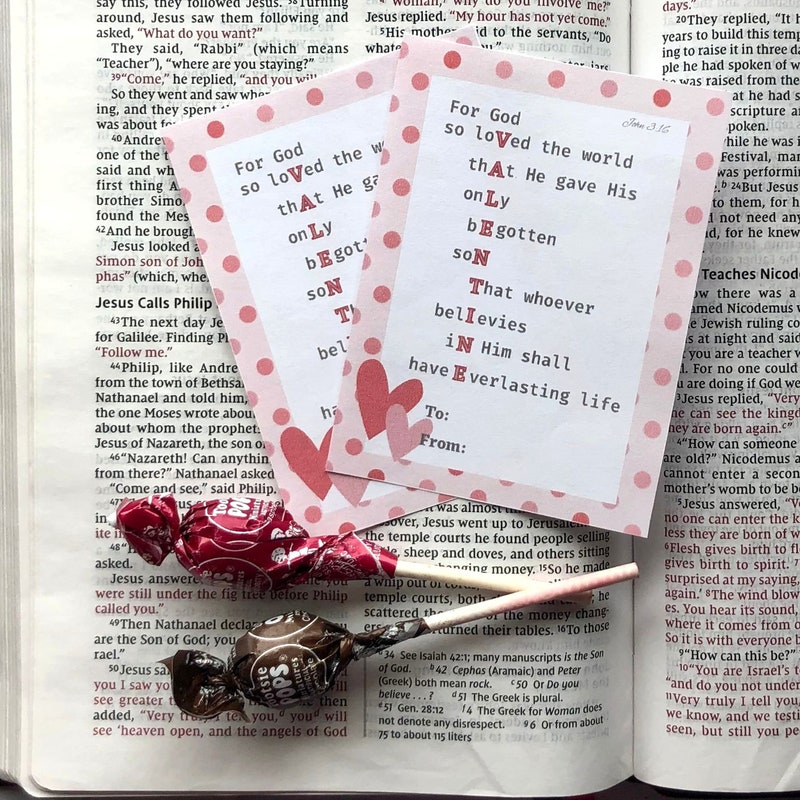 say this, they followed Jesus. 38Turning
around, Jesus saw them following and
asked, "What do you want?"
They said, "Rabbi" (which means
"Teacher"), "where are you staying?"
39"Come," he replied, "and you will
So they went and saw where
ing, and they spent
was about fo
40Andrew
one of the t
said and wh
first thing A
brother Simo
found the Mes
42And he brough
Jesus looked a
Simon son of Joh
phas" (which, whe
Jesus Calls Philip
43The next day Je
for Galilee. Finding Ph
"Follow me."
44Philip, like Andre
from the town of Bethsa
Nathanael and told him,
the one Moses wrote abou
about whom the prophets
Jesus of Nazareth, the son o
46"Nazareth! Can anything
from there?" Nathanael asked
"Come and see," said Philip.
asked.
Jesus answere
were still under the fig tree before Philip
called you."
49Then Nathanael decla
are the Son of God; you
rael."
50Jesus sa
you I saw yo
see greater
added, "Very truly I tell you,d youd will
see 'heaven open, and the angels of God
"Woman, why do you involve me?"
Jesus replied. "My hour has not yet come."
5His mother said to the servants, "Do
whate you."
For God
so loVed the w
thAt He ga
onLy
bEgott
soN
Th
bel
ha
John 3:16
For God
so loVed the world
thAt He gave His
onLy
bEgotten
soN
That whoever
belIevies
iN Him shall
haveEverlasting life
To:
From:
TOOTSIE
POPS
was almost
sover, Jesus went up to Jerusale
the temple courts he found people selling
le, sheep and doves, and others sitting
hanging money. 15So he made
a whip out of cords,
temple courts, both
scattered the of the money chan-
ers turned their tables. 16To those
b34 See Isaiah 42:1; many manuscripts is the Son
of God. b42 Cephas (Aramaic) and Peter
(Greek) both mean rock. c50 Or Do you
believe . . . ? d51 The Greek is plural.
e51 Gen. 28:12 f4 The Greek for Woman does
not denote any disrespect. g6 Or from about
75 to about 115 liters
days."
20They replied, "It h
years to build this temp
ing to raise it in three da
ple he had spoken of w
he was raised from the
at he had s
scripture a
poken.
hile he was i
Festival, man
was performin
b 24But Jesus
to them, for h
d not need any
d, for he knew
Teaches Nicode
ow there was a
med Nicodemus w
e Jewish ruling co
s at night and said
you are a teacher w
d. For no one could
u are doing if God we
3Jesus replied, "Very
ne can see the kingdo
hey are born again.c"
4"How can someone
are old?" Nicodemus a
cannot enter a secon
mother's womb to be bo
5Jesus answered, "Ve
no one can enter the k
less they are born of w
6Flesh gives birth to fl
gives birth to spirit. 7
surprised at my saying,
again.' 8The wind blow
es. You hear its sound,
where it comes from o
So it is with everyone b
9"How can this be?" N
10"You are Israel's te
"and do you not under
11Very truly I tell you,
we know, and we testi
seen, but still you pe